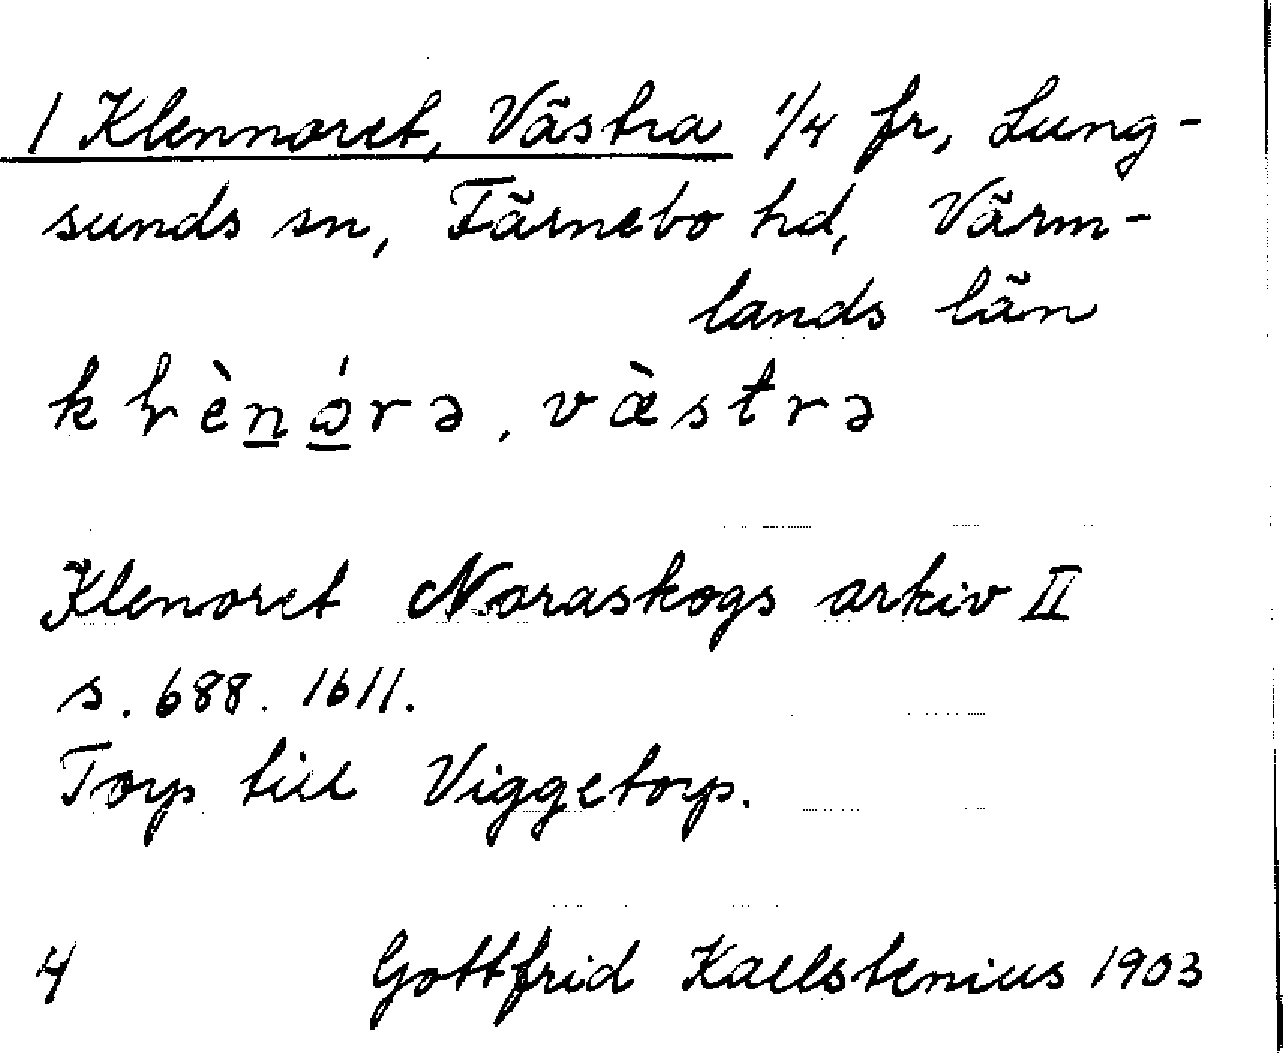 1 Klennoret, Västra 1/4 fr, Lung-
sunds sn, Färnebo hd, Värm-
lands län
västrə
Klenoret Noraskogs arkiv II
s. 688. 1611.
Torp till Viggetorp.
4 Gottfrid Kallstenius 1903